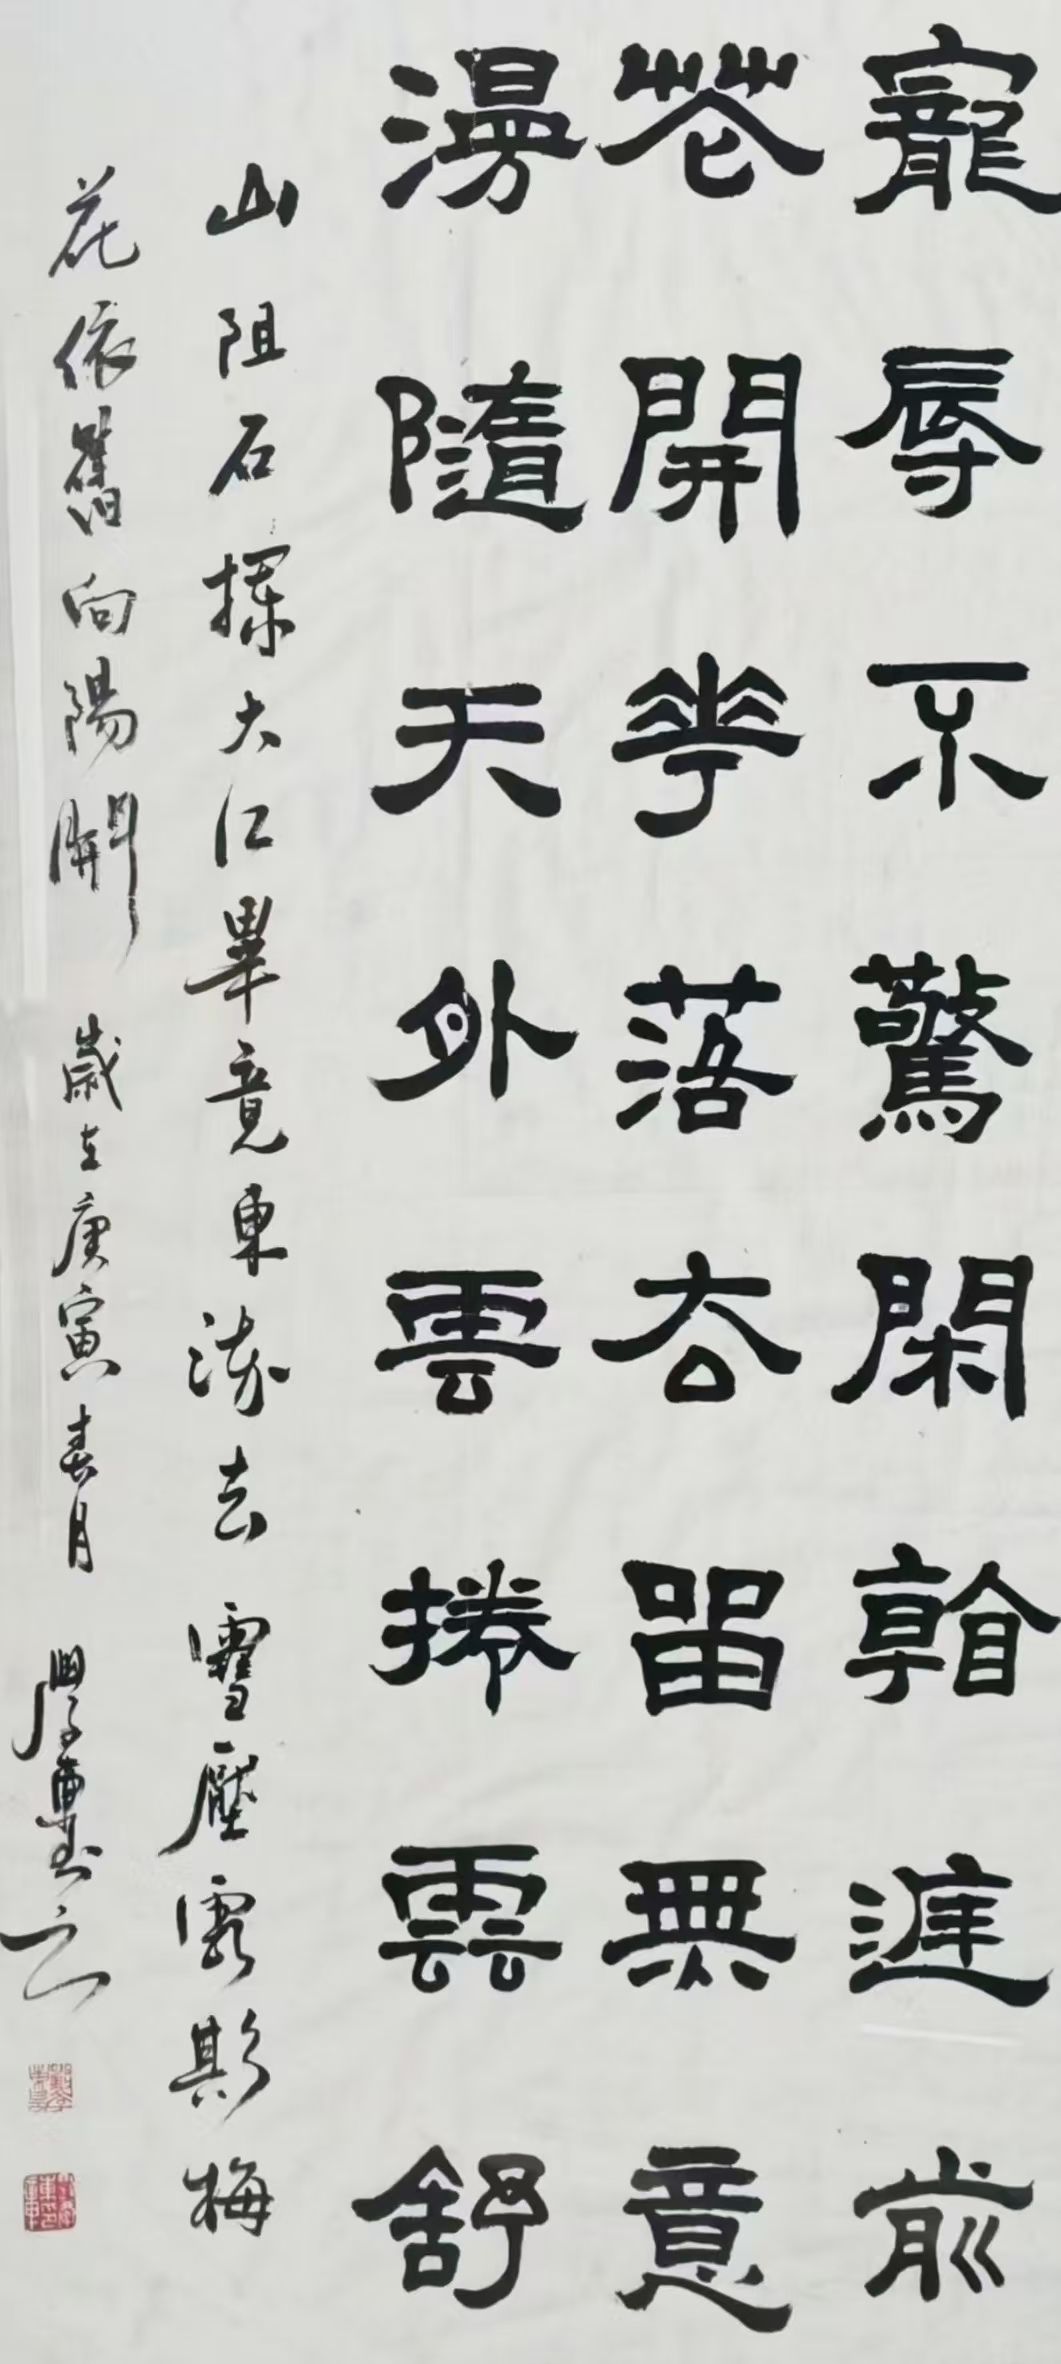 寵辱不驚閑看庭前
花開華落去留無意
漫隨天外雲捲雲舒
山阻石攔大江畢竟東流去 雪壓霜欺梅
花依舊向陽開 歲在庚寅春月 學書之